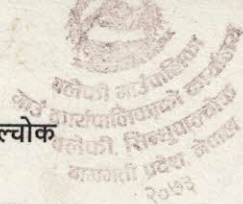 बलेफी गाउँपालिका
गाउँ कार्यपालिकाको कार्यालय
ल्चोक
बलेफी, सिन्धुपाल्चोक
बागमती प्रदेश, नेपाल
२०७३